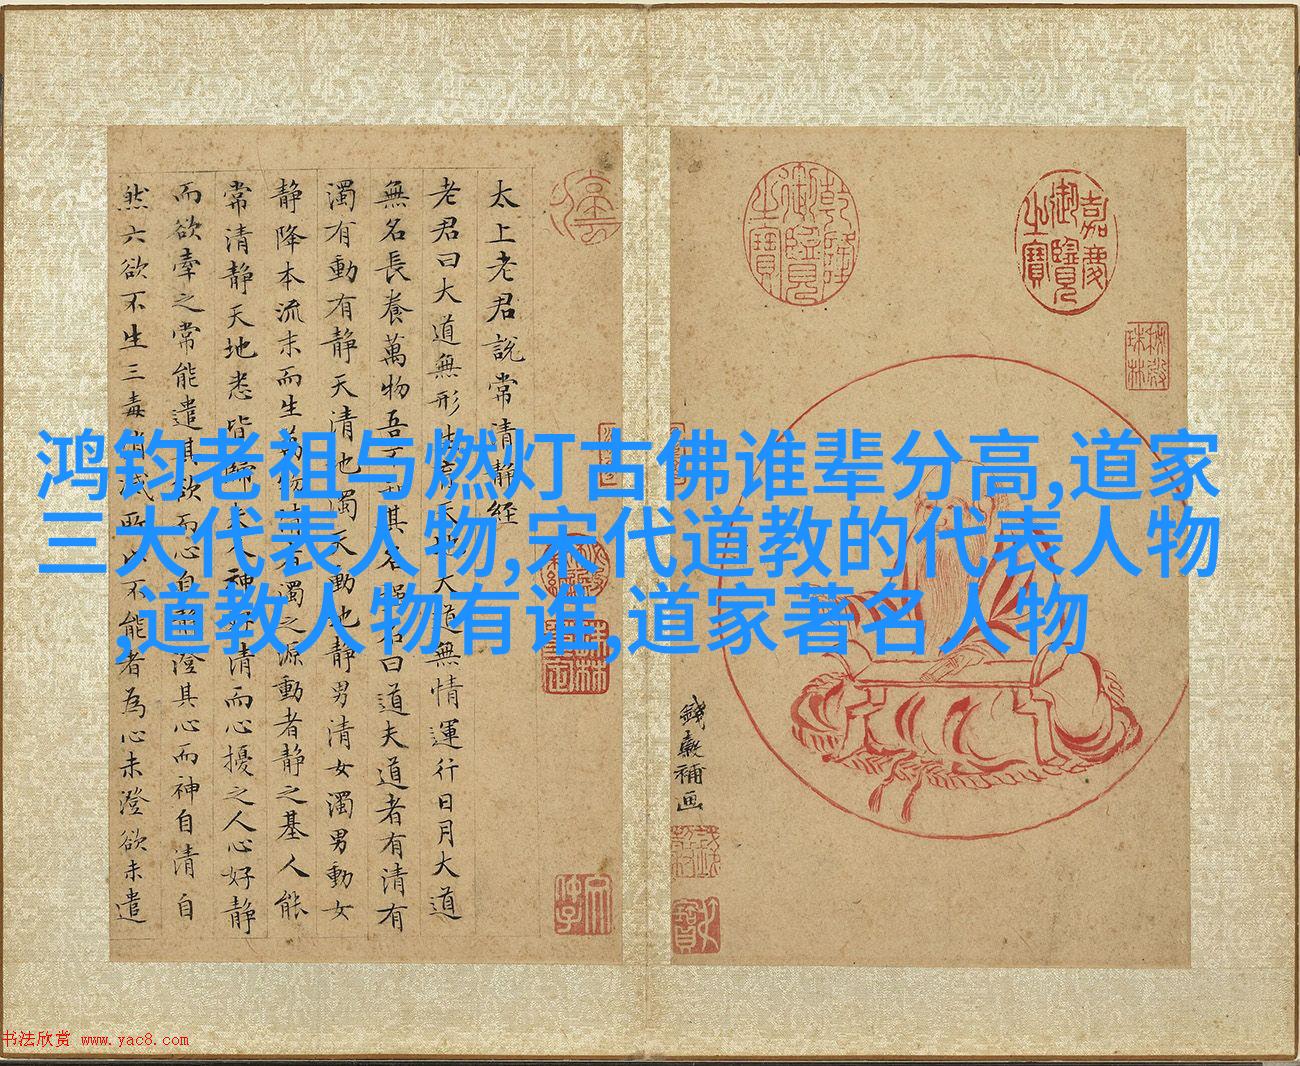 鸿钧老祖与燃灯古佛谁辈分高,道家
三大代表人物,宋代道教的代表人物
,道教人物有谁,道家著名人物
嘉慶御覽之寶
乾隆御覽之寶
秘殿珠林
錢穀補画
太上老君說常清静經
老君曰大道無形生育天地大道無情運行日月大道
無名長養萬物吾不知其名強名曰道夫道者有清有
濁有動有静天清地濁天動地静男清女濁男動女
静降本流末而生萬物清者濁之源動者静之基人能
常清静天地悉皆歸夫人神好清而心擾之人心好静
而欲牽之常能遣其欲而心自静澄其心而神自清自
然六欲不生三毒消滅所以不能者為心未澄欲未遣
书法欣赏 www.yac8.com